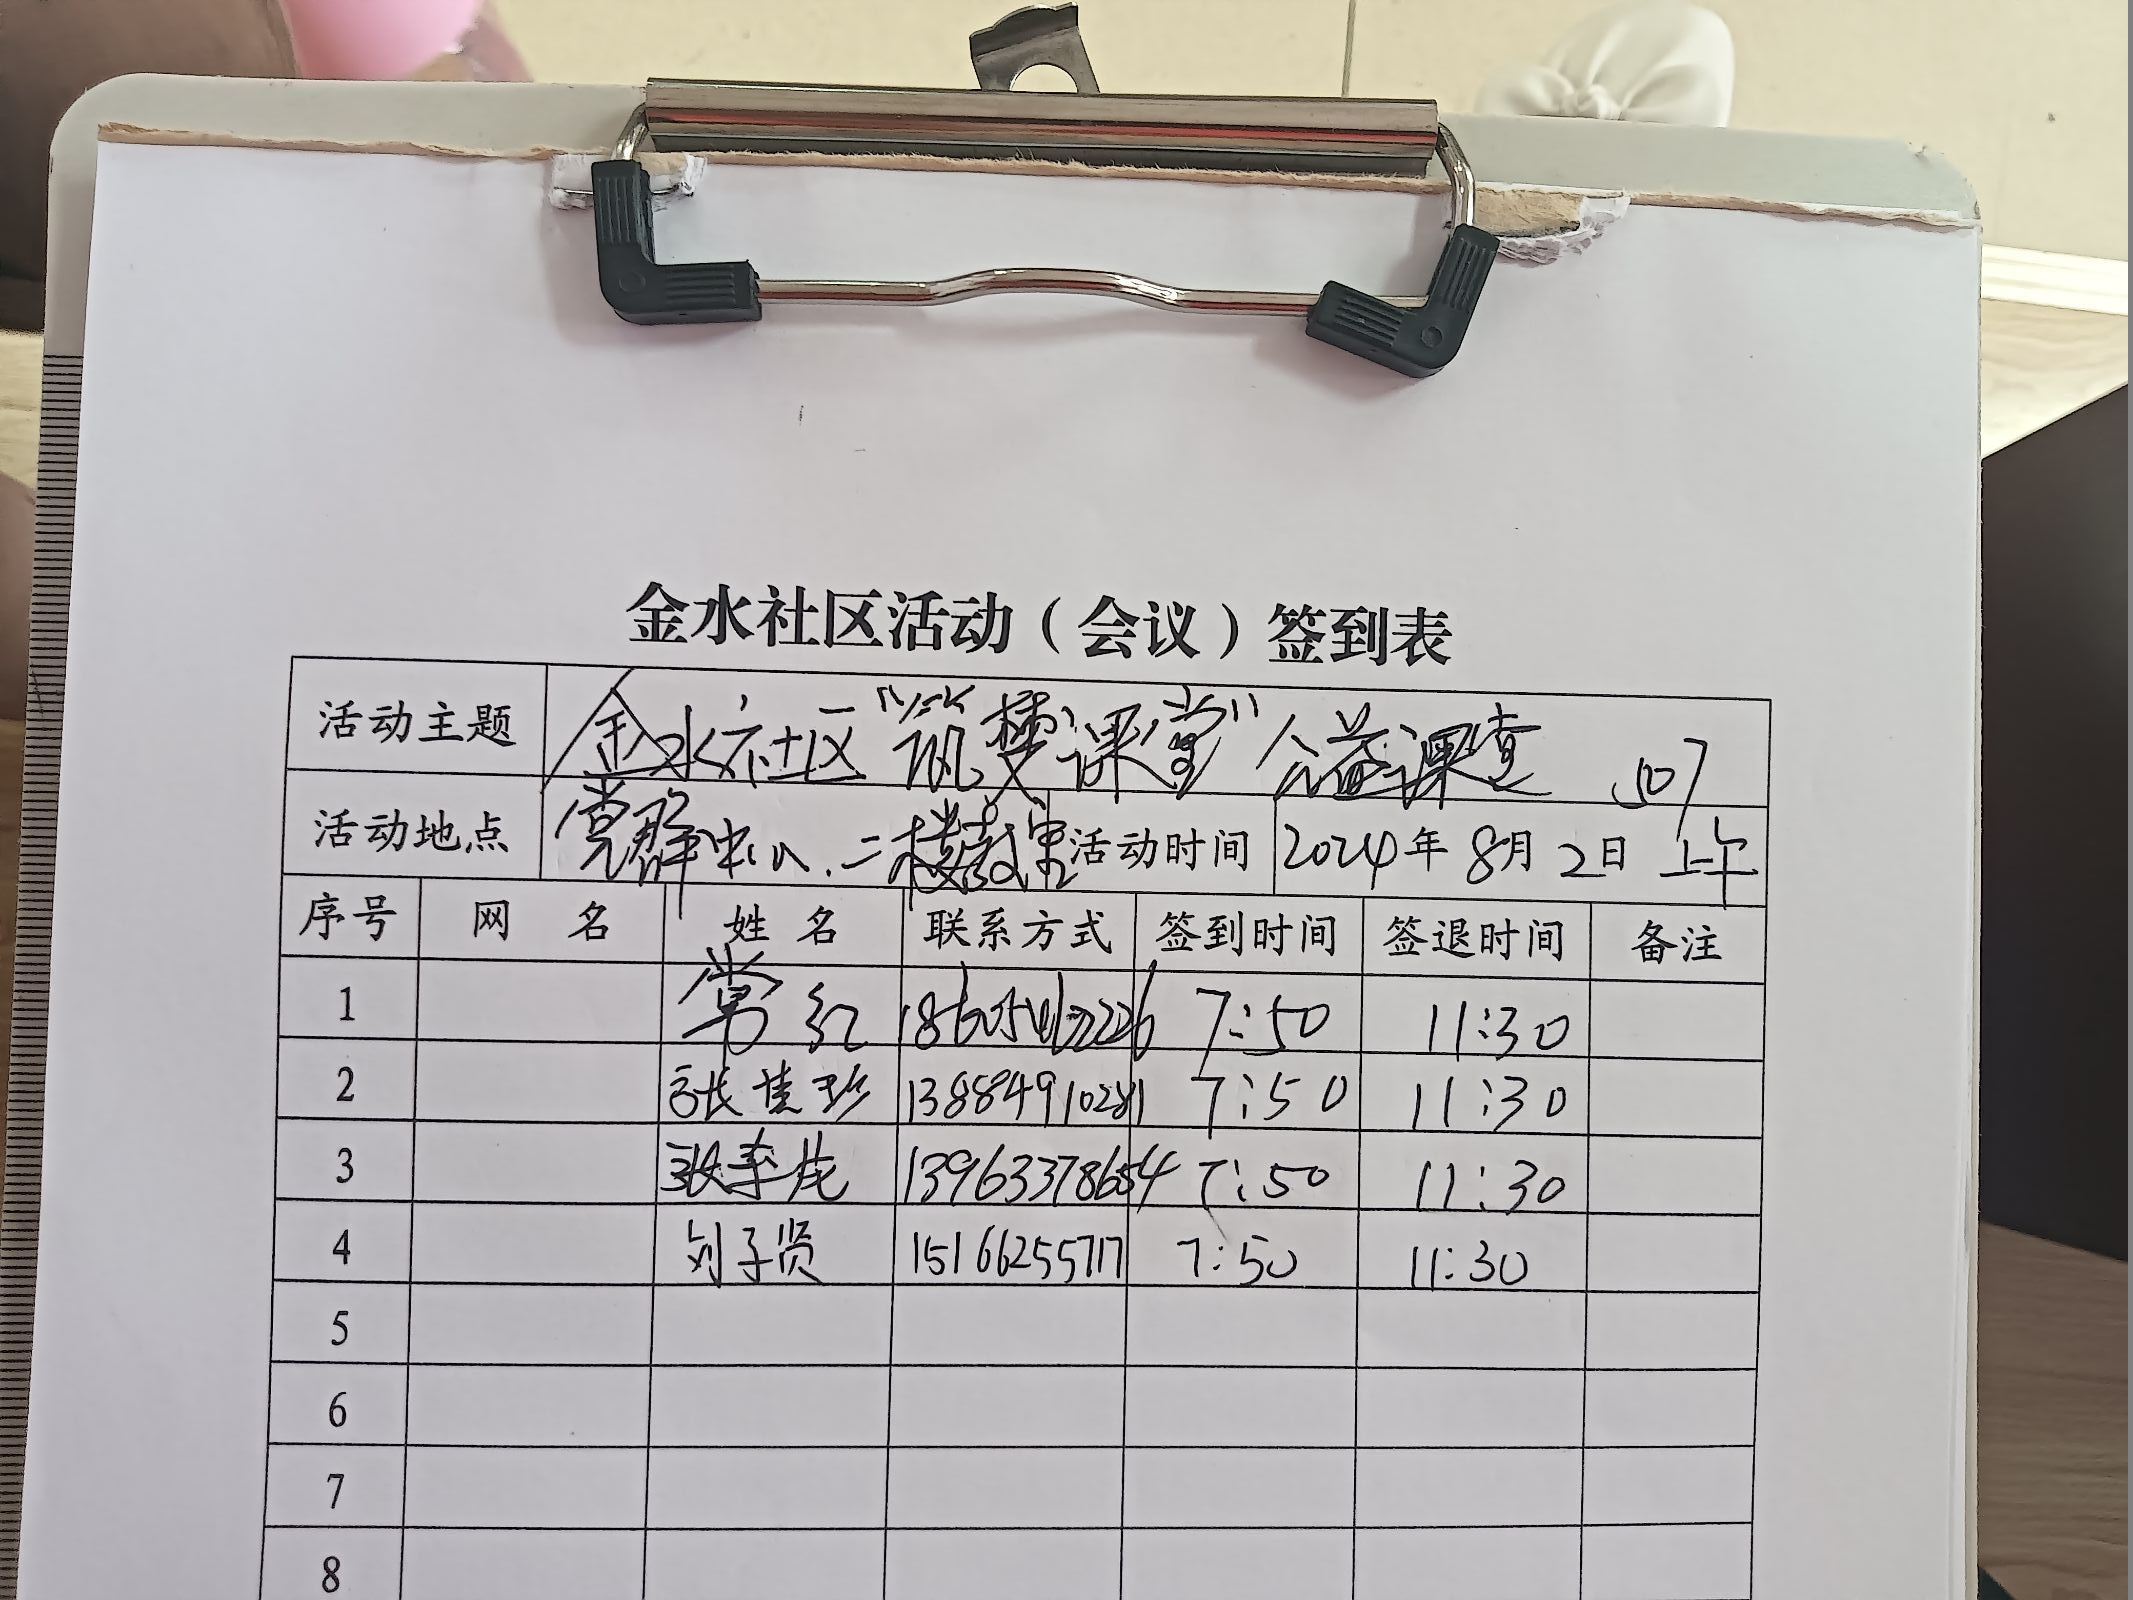 金水社区活动（会议）签到表
活动主题 金水社区“筑梦课堂”公益课堂 507
活动地点 党群中心二楼教室 活动时间 2024年8月2日 上午
序号 网 名 姓 名 联系方式 签到时间 签退时间 备注
1 常红 7:50 11:30
2 张佳珍 13884910281 7:50 11:30
3 张 13963378654 7:50 11:30
4 刘子贤 15166255717 7:50 11:30
5
6
7
8